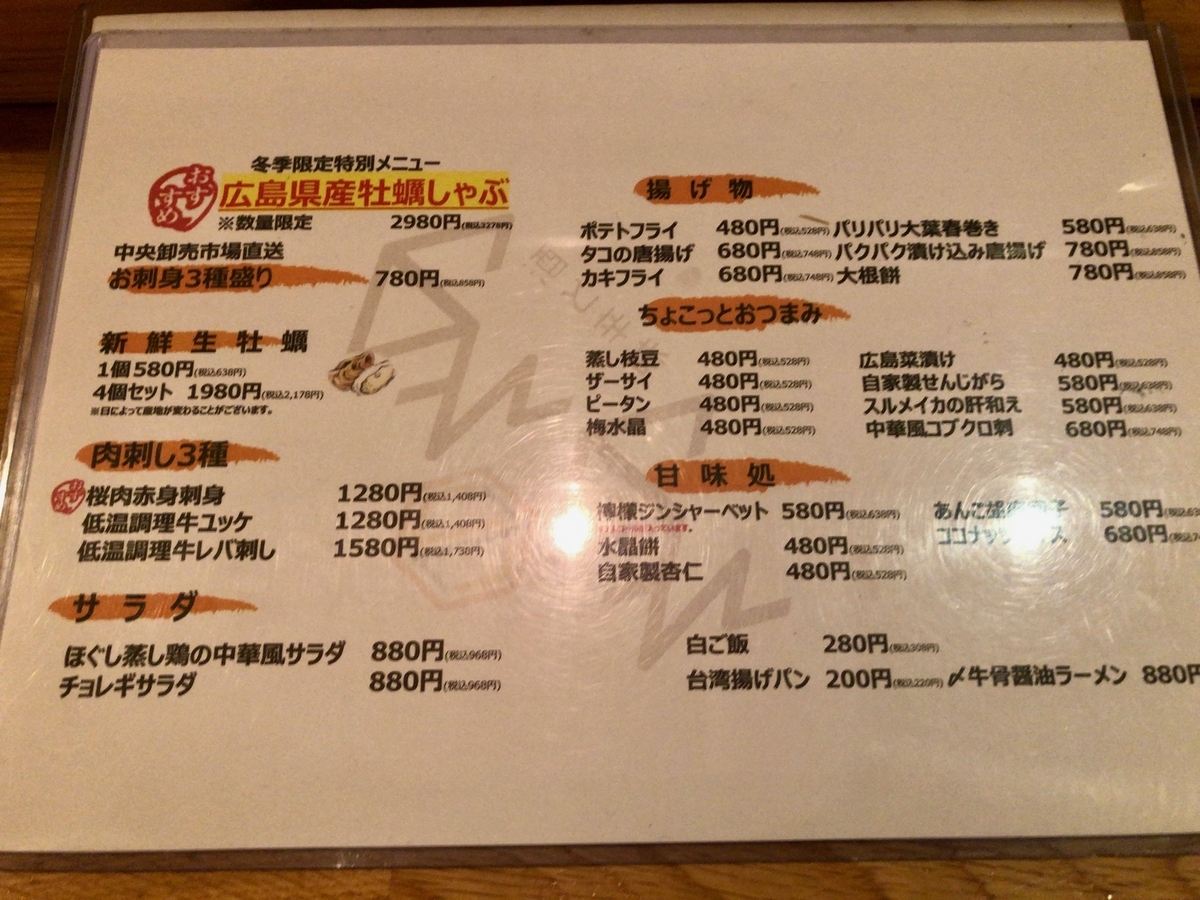 冬季限定特別メニュー
おすすめ
広島県産牡蠣しゃぶ
※数量限定 2980円(税込3278円)
中央卸売市場直送
お刺身3種盛り 780円(税込858円)
新鮮生牡蠣
1個580円(税込638円)
4個セット 1980円(税込2,178円)
※日によって産地が変わることがございます。
肉刺し3種
おすすめ 桜肉赤身刺身 1280円(税込1,408円)
低温調理牛ユッケ 1280円(税込1,408円)
低温調理牛レバ刺し 1580円(税込1,738円)
サラダ
ほぐし蒸し鶏の中華風サラダ 880円(税込968円)
チョレギサラダ 880円(税込968円)
揚げ物
ポテトフライ 480円(税込528円) パリパリ大葉春巻き 580円(税込638円)
タコの唐揚げ 680円(税込748円) パクパク漬け込み唐揚げ 780円(税込858円)
カキフライ 680円(税込748円) 大根餅 780円(税込858円)
ちょこっとおつまみ
蒸し枝豆 480円(税込528円) 広島菜漬け 480円(税込528円)
ザーサイ 480円(税込528円) 自家製せんじがら 580円(税込638円)
ピータン 480円(税込528円) スルメイカの肝和え 580円(税込638円)
梅水晶 480円(税込528円) 中華風コブクロ刺 680円(税込748円)
甘味処
檸檬ジンシャーベット 580円(税込638円) あんこ 580円
水晶餅 480円(税込528円) ココナッツ 680円
自家製杏仁 480円(税込528円)
白ご飯 280円(税込308円)
台湾揚げパン 200円(税込220円) 〆牛骨醤油ラーメン 880円